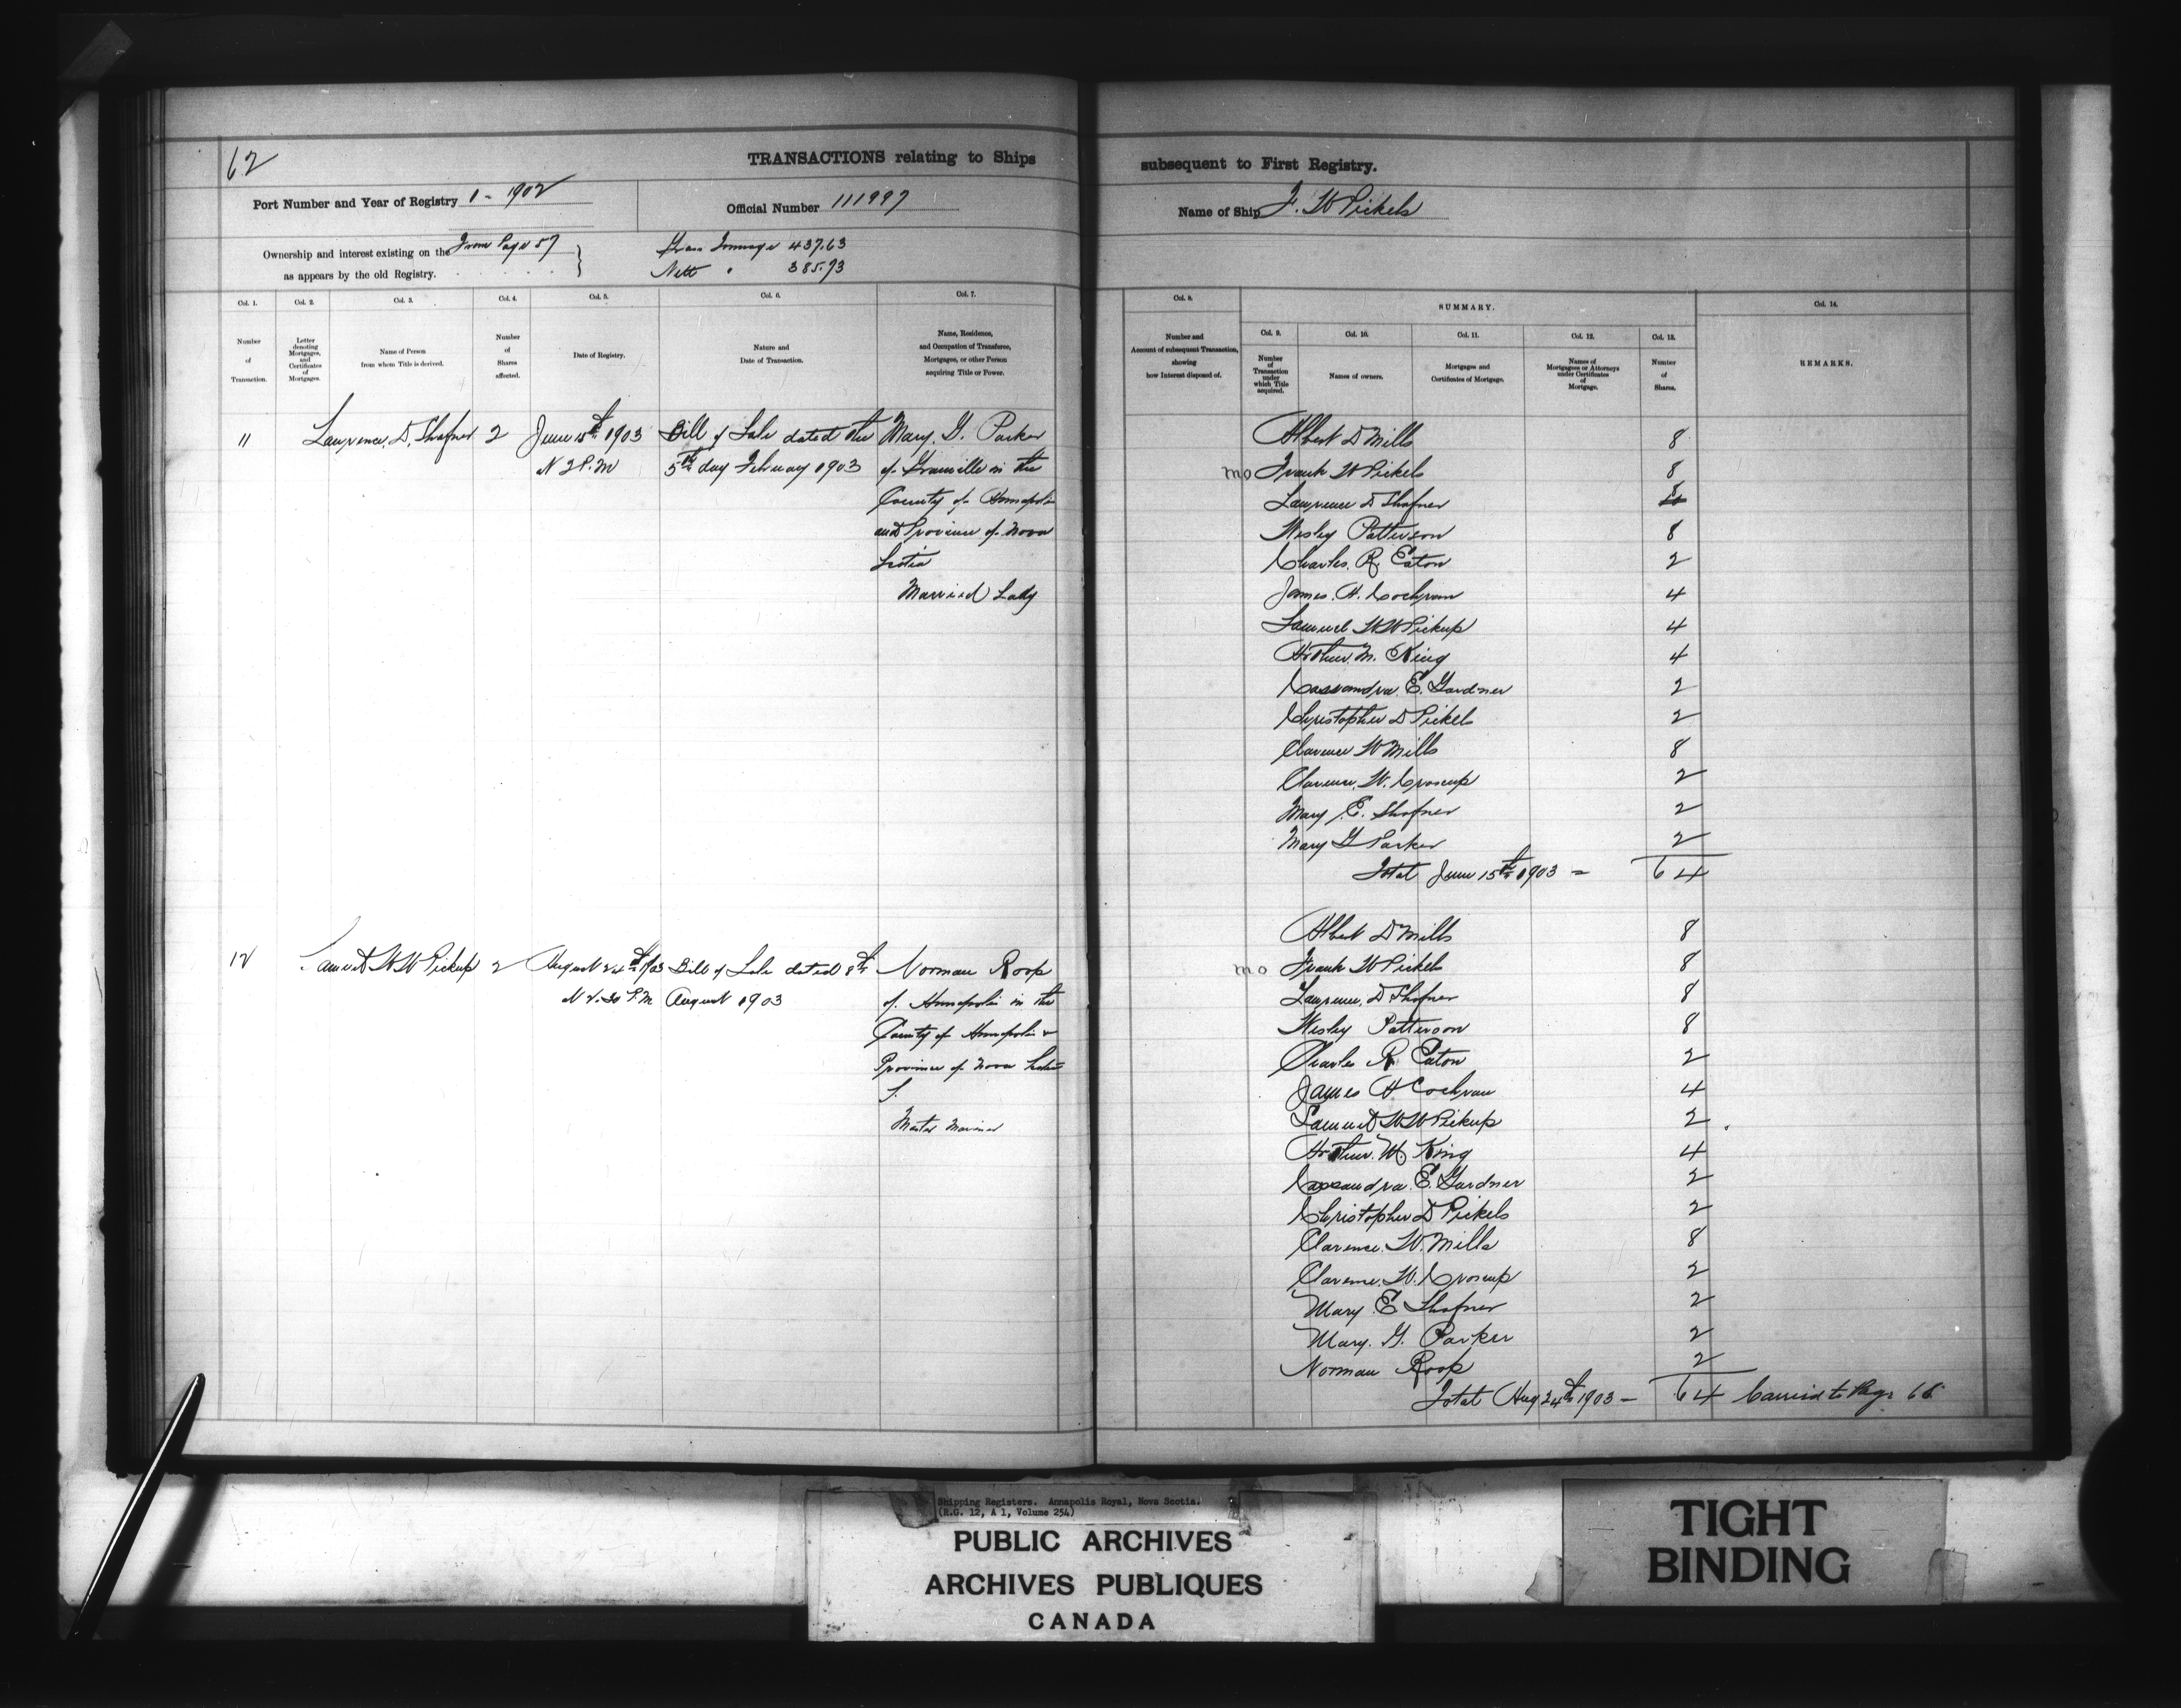 62
TRANSACTIONS relating to Ships subsequent to First Registry.
Port Number and Year of Registry 1 - 1902
Official Number 111997
Name of Ship F. W Pickels
Ownership and interest existing on the From Page 57
as appears by the old Registry.
Gross Tonnage 437.63
Nett " 385.93
Col. 1. Number of Transaction.
Col. 2. Letter denoting Mortgages, and Certificates of Mortgages.
Col. 3. Name of Person from whom Title is derived.
Col. 4. Number of Shares affected.
Col. 5. Date of Registry.
Col. 6. Nature and Date of Transaction.
Col. 7. Name, Residence, and Occupation of Transferee, Mortgagee, or other Person acquiring Title or Power.
Col. 8. Number and Account of subsequent Transaction, showing how Interest disposed of.
SUMMARY.
Col. 9. Number of Transaction under which Title acquired.
Col. 10. Names of owners.
Col. 11. Mortgages and Certificates of Mortgage.
Col. 12. Names of Mortgagees or Attorneys under Certificates of Mortgage.
Col. 13. Number of Shares.
Col. 14. REMARKS.
11 Lawrence. D. Shafner 2 June 15th 1903 Bill of Sale dated the Mary. G. Parker
2 P.M 5th day February 1903 of Granville in the
County of Annapolis
and Province of Nova
Scotia
Married Lady
Albert D Mills 8
mo Frank W Pickels 8
Lawrence D Shafner 8
Wesley Patterson 8
Charles. R. Eaton 2
James. H. Cochran 4
Samuel W W Pickup 4
Arthur. M. King 4
Cassandra. E. Gardner 2
Christopher D Pickels 2
Clarence W Mills 8
Clarence. W. Croscup 2
Mary E. Shafner 2
Mary G Parker 2
Total June 15th 1903 = 64
12 Samuel W W Pickup 2 August 24th 1903 Bill of Sale dated 8th Norman Roop
P.M August 1903 of Annapolis in the
County of Annapolis &
Province of Nova Scotia
Master Mariner
Albert D Mills 8
mo Frank W Pickels 8
Lawrence. D Shafner 8
Wesley Patterson 8
Charles R Eaton 2
James H Cochran 4
Samuel W W Pickup 2
Arthur. M. King 4
Cassandra. E. Gardner 2
Christopher D Pickels 2
Clarence. W. Mills 8
Clarence. W. Croscup 2
Mary E Shafner 2
Mary. G. Parker 2
Norman Roop 2
Total Aug 24th 1903 - 64 Carried to Page
Shipping Registers. Annapolis Royal, Nova Scotia.
(R.G. 12, A 1, Volume 254)
PUBLIC ARCHIVES
ARCHIVES PUBLIQUES
CANADA
TIGHT
BINDING